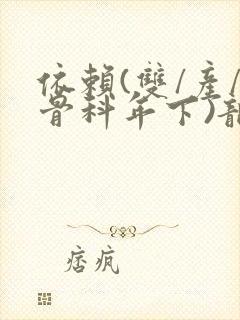 依賴(雙/產/
骨科年下)
痞疯